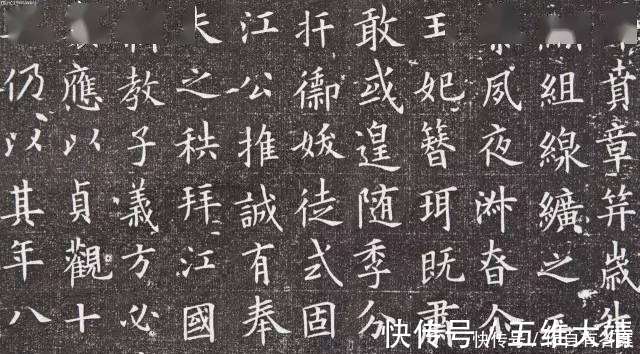 賁章笄歲
組線纊之
夙夜
王妃簪珥既肅
敢或遑随季分
扞媛徒式固
江公推誠有奉
夫之秩拜江國
教子義方必
應以貞觀十
仍以其年八
快传号 / 五维大
快传号 /